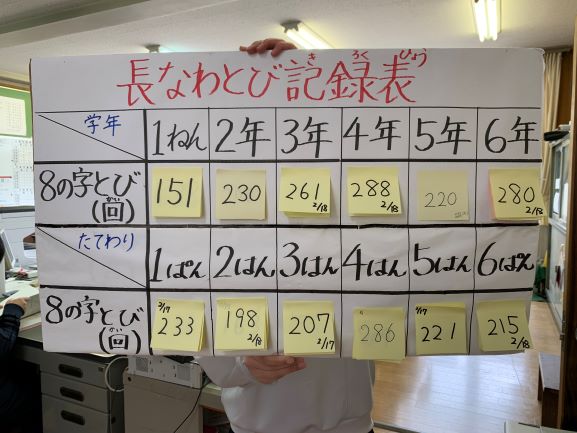 長なわとび記録表
き ろく ひょう
学年 1ねん 2年 3年 4年 5年 6年
8の字とび(回) 151 230 261 2/18 288 2/18 220 280 2/18
かい
たてわり 1ぱん 2はん 3はん 4はん 5はん 6ぱん
8の字とび(回) 2/17 233 198 2/18 207 2/17 286 2/17 221 215 2/18
かい